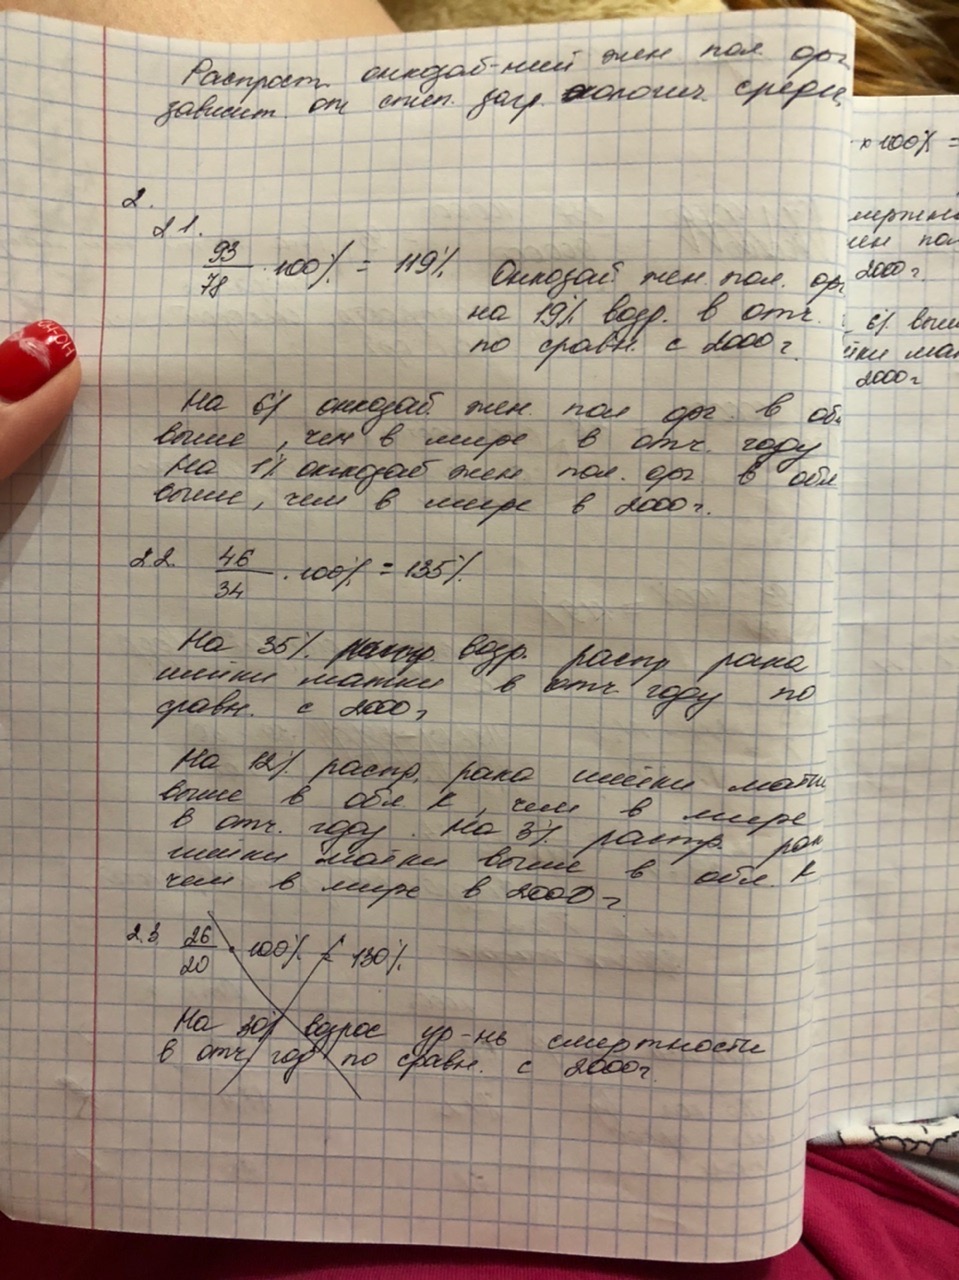 Распрост. онкозаб-ний жен пол. орг
зависит. от степ. загр. экологич. среды
2.
2 1.
93/78 · 100% = 119%
Онкозаб жен. пол. орг
на 19% возр. в отч.
по сравн. с 2000 г.
На 6% онкозаб. жен. пол орг. в об
выше, чем в мире в отч. году
На 1% онкозаб жен пол. орг в обл
выше, чем в мире в 2000 г.
2.2. 46/34 · 100% = 135%
На 35% возр. распр рака
шейки матки в отч. году по
сравн. с 2000 г
На 12% распр. рака шейки матк
выше в обл К, чем в мире
в отч. году. На 3% распр. рак
шейки матки выше в обл. К
чем в мире в 2000 г
2.3 26/20 · 100% = 130%
На 30% возрос ур-нь смертности
в отч год по сравн. с 2000г.
× 100% =
2000 г.
6% выш
2000 г